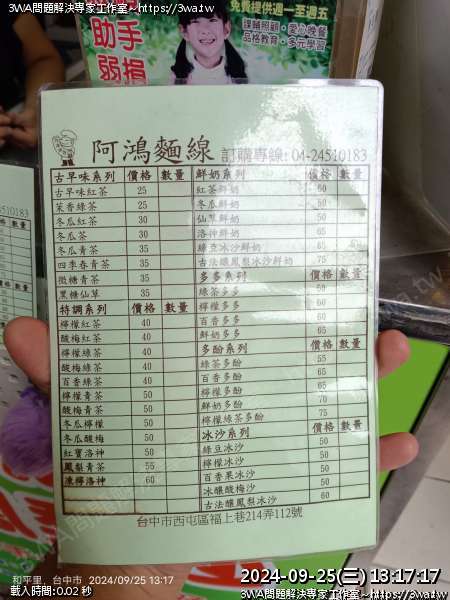 3WA問題解決專家工作室~https://3wa.tw
免費提供週一至週五
課輔照顧·愛心晚餐
品格教育·多元學習
助手
弱損
阿鴻麵線 訂購專線: 04-24510183
古早味系列 價格 數量 鮮奶系列 價格 數量
古早味紅茶 25 紅茶鮮奶 60
茉香綠茶 25 冬瓜鮮奶
冬瓜紅茶 30 仙草鮮奶
冬瓜茶 30 洛神鮮奶
冬瓜青茶 35 綠豆冰沙鮮奶
四季春青茶 35 古法釀鳳梨冰沙鮮奶 75
微糖青茶 35 多多系列 價格 數量
黑糖仙草 35 綠茶多多 50
特調系列 價格 數量 檸檬多多 60
檸檬紅茶 40 百香多多 60
酸梅紅茶 40 鮮奶多多 65
檸檬綠茶 40 多酚系列 價格 數量
酸梅綠茶 40 綠茶多酚 55
百香綠茶 40 百香多酚 65
檸檬青茶 50 檸檬多酚 65
酸梅青茶 50 鮮奶多酚 70
冬瓜檸檬 50 檸檬綠茶多酚 75
冬瓜酸梅 50 冰沙系列 價格 數量
紅寶洛神 50 綠豆冰沙 50
鳳梨青茶 55 檸檬冰沙 50
凍檸洛神 60 百香果冰沙 50
冰釀酸梅沙 50
古法釀鳳梨冰沙 60
台中市西屯區福上巷214弄112號
和平里, 台中市 2024/09/25 13:17
載入時間:0.02 秒
2024-09-25(三) 13:17:17
3WA問題解決專家工作室~https://3wa.tw